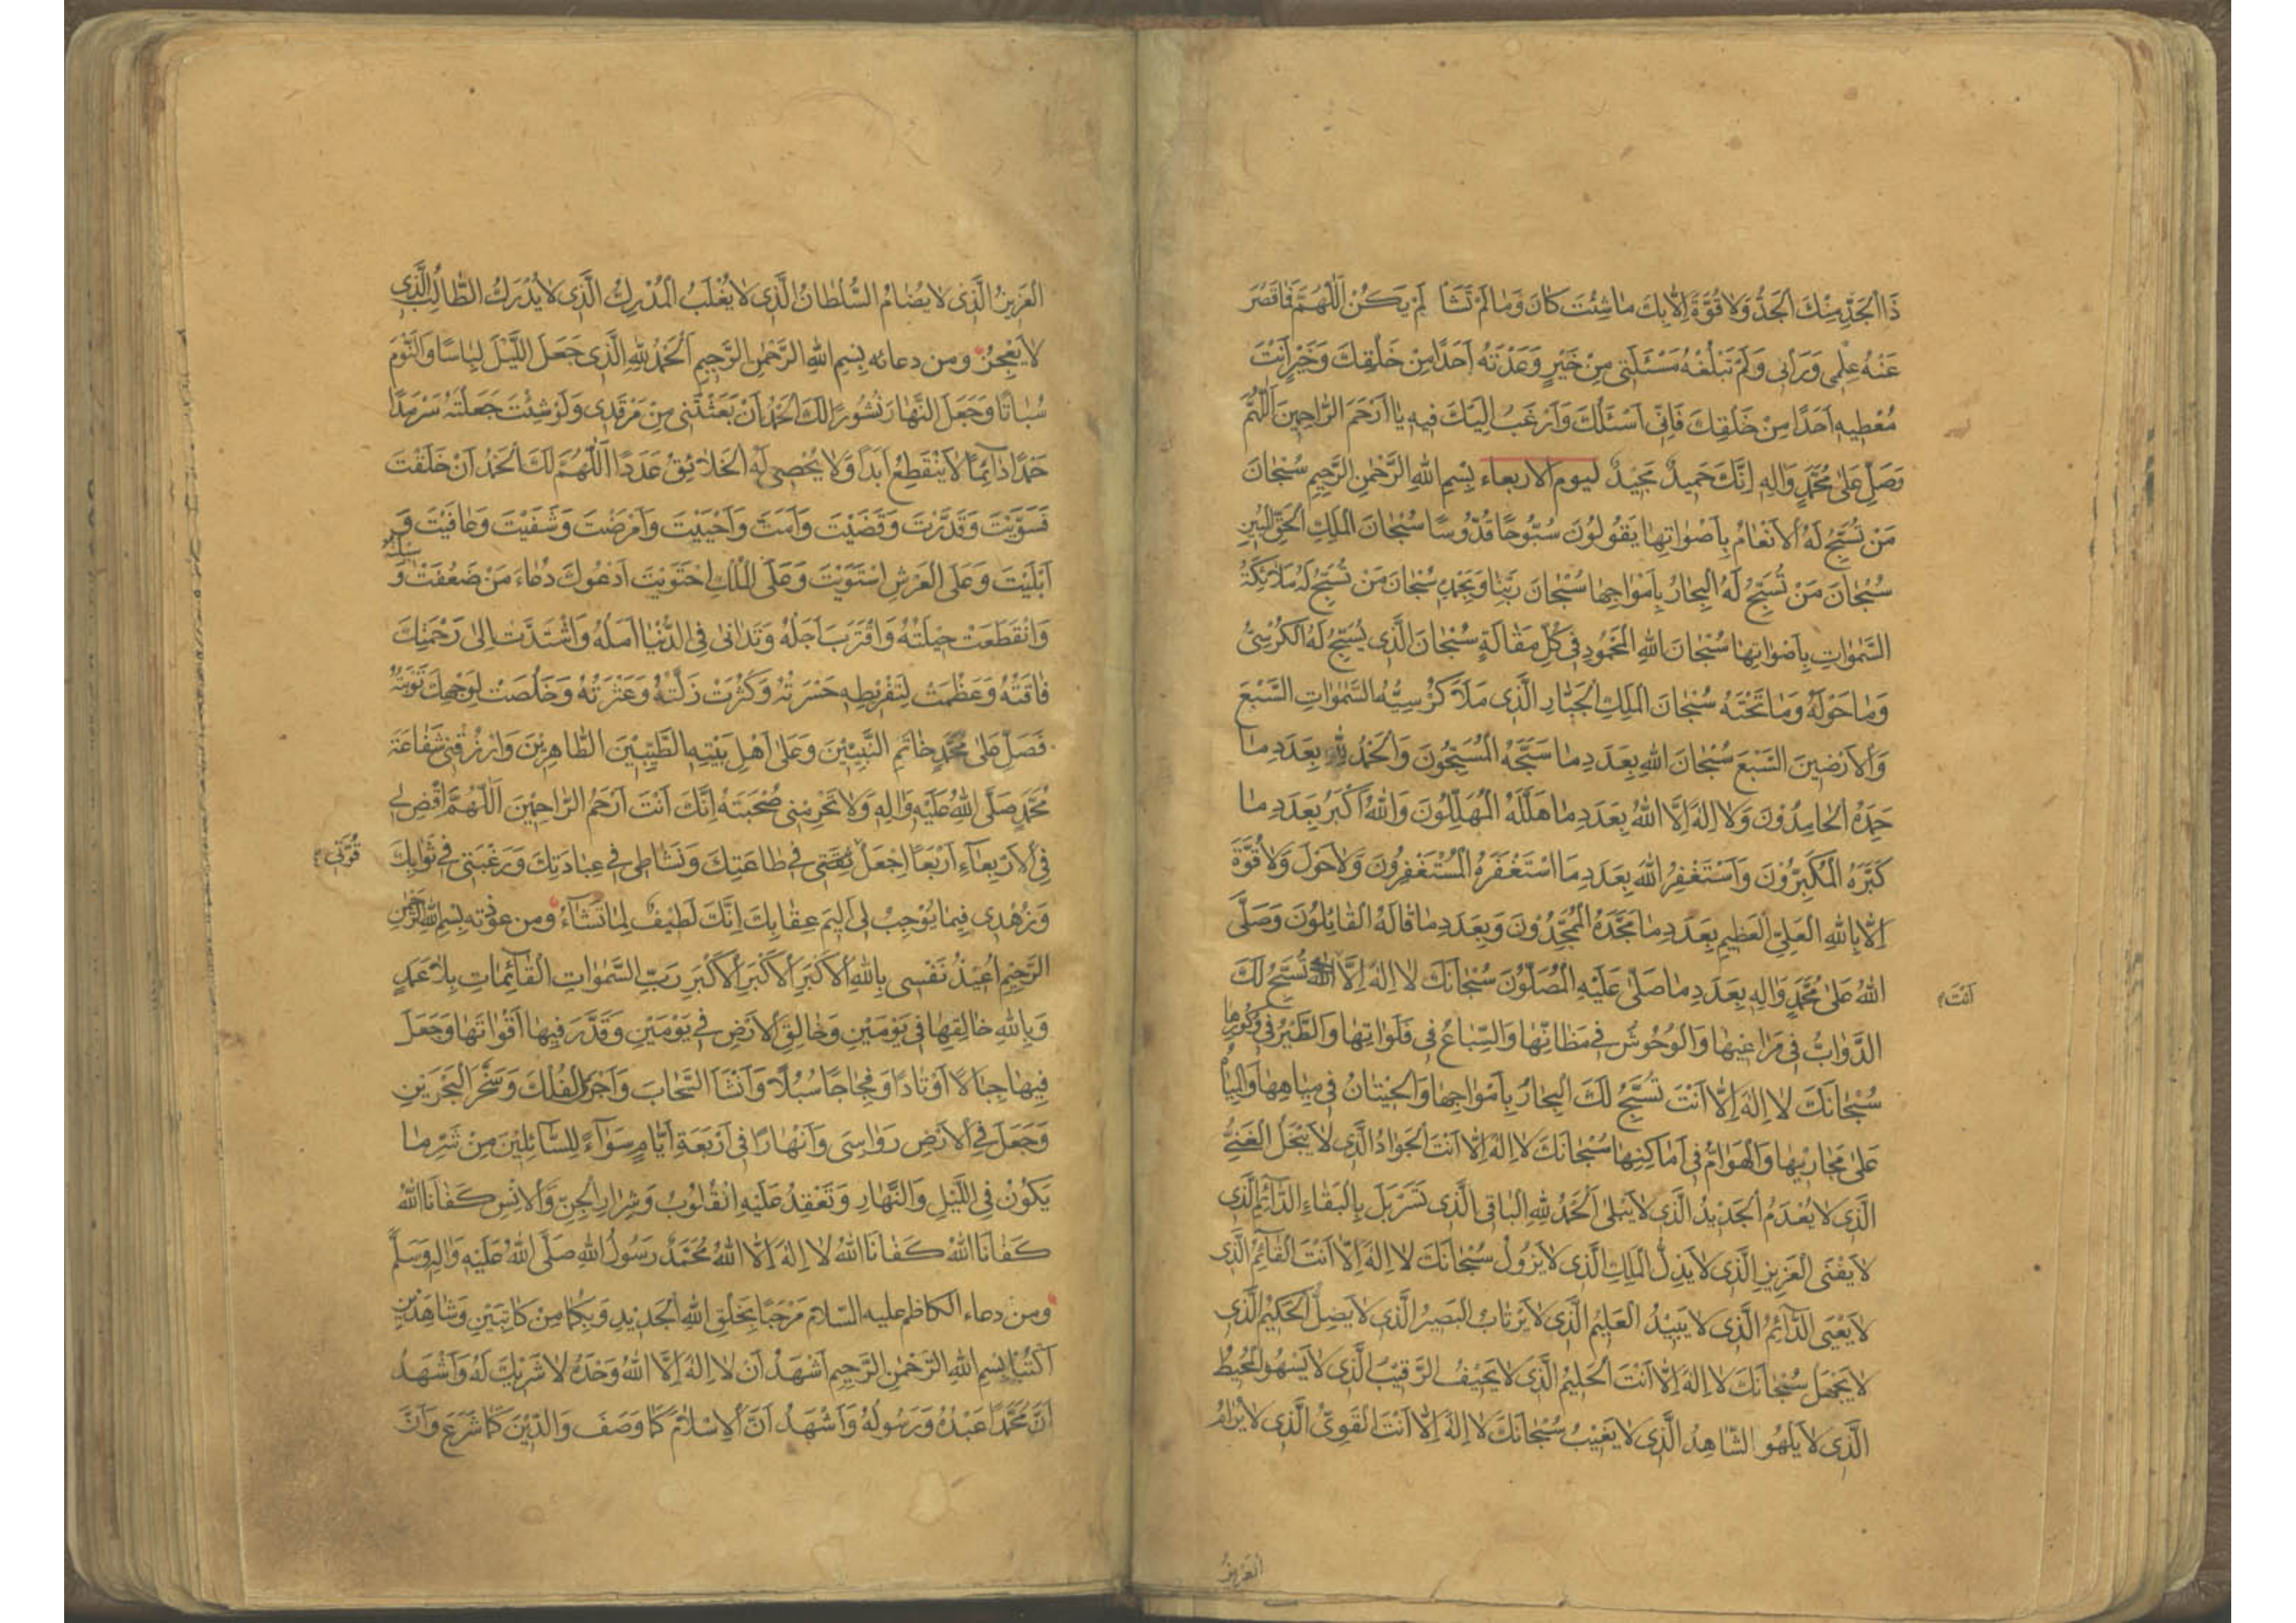 ذَا الْجَدِّ مِنْكَ الْجَدُّ وَلَا قُوَّةَ اِلَّا بِكَ مَا شِئْتَ كَانَ وَمَا لَمْ تَشَأْ لَمْ يَكُنْ اَللّٰهُمَّ فَمَا قَصُرَ
عَنْهُ عِلْمِى وَرَأْيِى وَلَمْ تَبْلُغْهُ مَسْئَلَتِى مِنْ خَيْرٍ وَعَدْتَهُ اَحَدًا مِنْ خَلْقِكَ وَخَيْرٍ اَنْتَ
مُعْطِيهِ اَحَدًا مِنْ خَلْقِكَ فَاِنِّى اَسْئَلُكَ وَاَرْغَبُ اِلَيْكَ فِيهِ يَا اَرْحَمَ الرَّاحِمِينَ اَللّٰهُمَّ
وَصَلِّ عَلٰى مُحَمَّدٍ وَاٰلِهِ اِنَّكَ حَمِيدٌ مَجِيدٌ ليوم الاربعاء بِسْمِ اللّٰهِ الرَّحْمٰنِ الرَّحِيمِ سُبْحَانَ
مَنْ تُسَبِّحُ لَهُ الْاَنْعَامُ بِاَصْوَاتِهَا يَقُولُونَ سُبُّوحًا قُدُّوسًا سُبْحَانَ الْمَلِكِ الْحَقِّ الْمُبِينِ
سُبْحَانَ مَنْ تُسَبِّحُ لَهُ الْبِحَارُ بِاَمْوَاجِهَا سُبْحَانَ رَبِّنَا وَبِحَمْدِهِ سُبْحَانَ مَنْ تُسَبِّحُ لَهُ مَلَائِكَةُ
السَّمٰوَاتِ بِاَصْوَاتِهَا سُبْحَانَ اللّٰهِ الْمَحْمُودِ فِى كُلِّ مَقَالَةٍ سُبْحَانَ الَّذِى يُسَبِّحُ لَهُ الْكُرْسِىُّ
وَمَا حَوْلَهُ وَمَا تَحْتَهُ سُبْحَانَ الْمَلِكِ الْجَبَّارِ الَّذِى مَلَأَ كُرْسِيُّهُ السَّمٰوَاتِ السَّبْعَ
وَالْاَرَضِينَ السَّبْعَ سُبْحَانَ اللّٰهِ بِعَدَدِ مَا سَبَّحَهُ الْمُسَبِّحُونَ وَالْحَمْدُ لِلّٰهِ بِعَدَدِ مَا
حَمِدَهُ الْحَامِدُونَ وَلَا اِلٰهَ اِلَّا اللّٰهُ بِعَدَدِ مَا هَلَّلَهُ الْمُهَلِّلُونَ وَاللّٰهُ اَكْبَرُ بِعَدَدِ مَا
كَبَّرَهُ الْمُكَبِّرُونَ وَاَسْتَغْفِرُ اللّٰهَ بِعَدَدِ مَا اسْتَغْفَرَهُ الْمُسْتَغْفِرُونَ وَلَا حَوْلَ وَلَا قُوَّةَ
اِلَّا بِاللّٰهِ الْعَلِىِّ الْعَظِيمِ بِعَدَدِ مَا مَجَّدَهُ الْمُمَجِّدُونَ وَبِعَدَدِ مَا قَالَهُ الْقَائِلُونَ وَصَلَّى
اللّٰهُ عَلٰى مُحَمَّدٍ وَاٰلِهِ بِعَدَدِ مَا صَلّٰى عَلَيْهِ الْمُصَلُّونَ سُبْحَانَكَ لَا اِلٰهَ اِلَّا تُسَبِّحُ لَكَ
اَنْتَ
الدَّوَابُّ فِى مَرَاعِيهَا وَالْوُحُوشُ فِى مَظَانِّهَا وَالسِّبَاعُ فِى فَلَوَاتِهَا وَالطَّيْرُ فِى وُكُورِهَا
سُبْحَانَكَ لَا اِلٰهَ اِلَّا اَنْتَ تُسَبِّحُ لَكَ الْبِحَارُ بِاَمْوَاجِهَا وَالْحِيتَانُ فِى مِيَاهِهَا وَالْمِيَاهُ
عَلٰى مَجَارِيهَا وَالْهَوَامُّ فِى اَمَاكِنِهَا سُبْحَانَكَ لَا اِلٰهَ اِلَّا اَنْتَ الْجَوَادُ الَّذِى لَا يَبْخَلُ الْغَنِىُّ
الَّذِى لَا يُعْدَمُ الْجَدِيدُ الَّذِى لَا يَبْلٰى اَلْحَمْدُ لِلّٰهِ الْبَاقِى الَّذِى تَسَرْبَلَ بِالْبَقَاءِ الدَّائِمِ الَّذِى
لَا يَفْنَى الْعَزِيزِ الَّذِى لَا يَذِلُّ الْمَلِكِ الَّذِى لَا يَزُولُ سُبْحَانَكَ لَا اِلٰهَ اِلَّا اَنْتَ الْقَائِمُ الَّذِى
لَا يَعْيَى الدَّائِمُ الَّذِى لَا يَبِيدُ الْعَلِيمُ الَّذِى لَا يَرْتَابُ الْبَصِيرُ الَّذِى لَا يَضِلُّ الْحَكِيمُ الَّذِى
لَا يَجْهَلُ سُبْحَانَكَ لَا اِلٰهَ اِلَّا اَنْتَ الْحَلِيمُ الَّذِى لَا يَحِيفُ الرَّقِيبُ الَّذِى لَا يَسْهُو الْمُحِيطُ
الَّذِى لَا يَلْهُو الشَّاهِدُ الَّذِى لَا يَغِيبُ سُبْحَانَكَ لَا اِلٰهَ اِلَّا اَنْتَ الْقَوِىُّ الَّذِى لَا يُرَامُ
العَزِيزُ
الْعَزِيزُ الَّذِى لَا يُضَامُ السُّلْطَانُ الَّذِى لَا يُغْلَبُ الْمُدْرِكُ الَّذِى لَا يُدْرَكُ الطَّالِبُ الَّذِى
لَا يَعْجِزُ ومن دعائه بِسْمِ اللّٰهِ الرَّحْمٰنِ الرَّحِيمِ اَلْحَمْدُ لِلّٰهِ الَّذِى جَعَلَ اللَّيْلَ لِبَاسًا وَالنَّوْمَ
سُبَاتًا وَجَعَلَ النَّهَارَ نُشُورًا لَكَ الْحَمْدُ اَنْ بَعَثْتَنِى مِنْ مَرْقَدِى وَلَوْ شِئْتَ جَعَلْتَهُ سَرْمَدًا
حَمْدًا دَائِمًا لَا يَنْقَطِعُ اَبَدًا وَلَا يُحْصِى لَهُ الْخَلَائِقُ عَدَدًا اَللّٰهُمَّ لَكَ الْحَمْدُ اَنْ خَلَقْتَ
فَسَوَّيْتَ وَقَدَّرْتَ وَقَضَيْتَ وَاَمَتَّ وَاَحْيَيْتَ وَاَمْرَضْتَ وَشَفَيْتَ وَعَافَيْتَ وَ
اَبْلَيْتَ وَعَلَى الْعَرْشِ اسْتَوَيْتَ وَعَلَى الْمُلْكِ احْتَوَيْتَ اَدْعُوكَ دُعَاءَ مَنْ ضَعُفَتْ وَسِيلَتُهُ
وَانْقَطَعَتْ حِيلَتُهُ وَاقْتَرَبَ اَجَلُهُ وَتَدَانٰى فِى الدُّنْيَا اَمَلُهُ وَاشْتَدَّتْ اِلٰى رَحْمَتِكَ
فَاقَتُهُ وَعَظُمَتْ لِتَفْرِيطِهِ حَسْرَتُهُ وَكَثُرَتْ زَلَّتُهُ وَعَثْرَتُهُ وَخَلُصَتْ لِوَجْهِكَ تَوْبَتُهُ
فَصَلِّ عَلٰى مُحَمَّدٍ خَاتَمِ النَّبِيِّينَ وَعَلٰى اَهْلِ بَيْتِهِ الطَّيِّبِينَ الطَّاهِرِينَ وَارْزُقْنِى شَفَاعَةَ
مُحَمَّدٍ صَلَّى اللّٰهُ عَلَيْهِ وَاٰلِهِ وَلَا تَحْرِمْنِى صُحْبَتَهُ اِنَّكَ اَنْتَ اَرْحَمُ الرَّاحِمِينَ اَللّٰهُمَّ اقْضِ لِى
فِى الْاَرْبِعَاءِ اَرْبَعًا اِجْعَلْ فِى طَاعَتِكَ وَنَشَاطِى فِى عِبَادَتِكَ وَرَغْبَتِى فِى ثَوَابِكَ
قُوَّتِى
وَزُهْدِى فِيمَا يُوجِبُ لِى اَلِيمَ عِقَابِكَ اِنَّكَ لَطِيفٌ لِمَا تَشَاءُ ومن عوذته بِسْمِ اللّٰهِ الرَّحْمٰنِ
الرَّحِيمِ اُعِيذُ نَفْسِى بِاللّٰهِ الْاَكْبَرِ الْاَكْبَرِ الْاَكْبَرِ رَبِّ السَّمٰوَاتِ الْقَائِمَاتِ بِلَا عَمَدٍ
وَبِاللّٰهِ خَالِقِهَا فِى يَوْمَيْنِ وَخَالِقِ الْاَرْضِ فِى يَوْمَيْنِ وَقَدَّرَ فِيهَا اَقْوَاتَهَا وَجَعَلَ
فِيهَا جِبَالًا اَوْتَادًا وَفِجَاجًا سُبُلًا وَاَنْشَاَ السَّحَابَ وَاَجْرَى الْفُلْكَ وَسَخَّرَ الْبَحْرَيْنِ
وَجَعَلَ فِى الْاَرْضِ رَوَاسِىَ وَاَنْهَارًا فِى اَرْبَعَةِ اَيَّامٍ سَوَاءً لِلسَّائِلِينَ مِنْ شَرِّ مَا
يَكُونُ فِى اللَّيْلِ وَالنَّهَارِ وَتَعْقِدُ عَلَيْهِ الْقُلُوبُ وَشِرَارِ الْجِنِّ وَالْاِنْسِ كَفَانَا اللّٰهُ
كَفَانَا اللّٰهُ كَفَانَا اللّٰهُ لَا اِلٰهَ اِلَّا اللّٰهُ مُحَمَّدٌ رَسُولُ اللّٰهِ صَلَّى اللّٰهُ عَلَيْهِ وَاٰلِهِ وَسَلَّمَ
ومن دعاء الكاظم عليه السلام مَرْحَبًا بِخَلْقِ اللّٰهِ الْجَدِيدِ وَبِكُمَا مِنْ كَاتِبَيْنِ وَشَاهِدَيْنِ
اُكْتُبَا بِسْمِ اللّٰهِ الرَّحْمٰنِ الرَّحِيمِ اَشْهَدُ اَنْ لَا اِلٰهَ اِلَّا اللّٰهُ وَحْدَهُ لَا شَرِيكَ لَهُ وَاَشْهَدُ
اَنَّ مُحَمَّدًا عَبْدُهُ وَرَسُولُهُ وَاَشْهَدُ اَنَّ الْاِسْلَامَ كَمَا وَصَفَ وَالدِّينَ كَمَا شَرَعَ وَاَنَّ